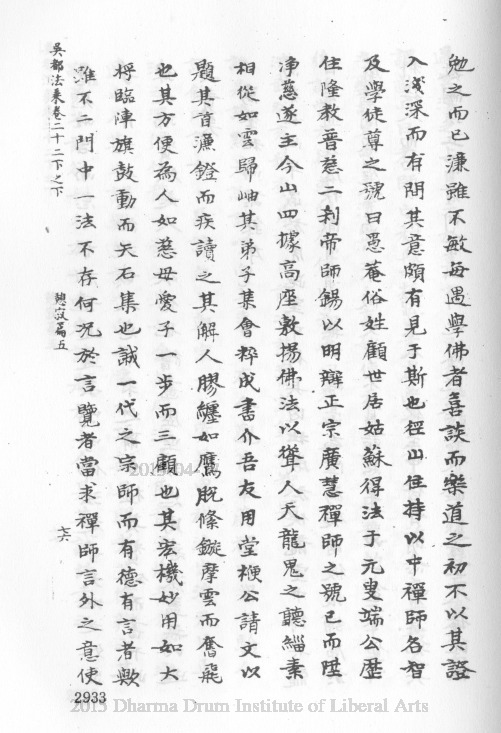 勉之而已濂雖不敏每遇學佛者喜談而樂道之初不以其證
入淺深而有間其意頗有見于斯也徑山住持以中禪師名智
及學徒尊之號曰愚菴俗姓顧世居姑蘇得法于元叟端公歷
住隆教普慈二刹帝師錫以明辯正宗廣慧禪師之號已而陞
淨慈遂主今山四據高座敷揚佛法以聳人天龍鬼之聽緇素
相從如雲歸岫其弟子集會粹成書介吾友用堂楩公請文以
題其首濂發而疾讀之其解人膠纏如鷹脫絛鏇摩雲而奮飛
也其方便為人如慈母愛子一步而三顧也其宏機妙用如大
將臨陣旗鼓動而矢石集也誠一代之宗師而有德有言者歟
雖不二門中一法不存何況於言覽者當求禪師言外之意使
吳都法乘卷二十二下之下
魄寂篇五
六六
2933
2015 Dharma Drum Institute of Liberal Arts